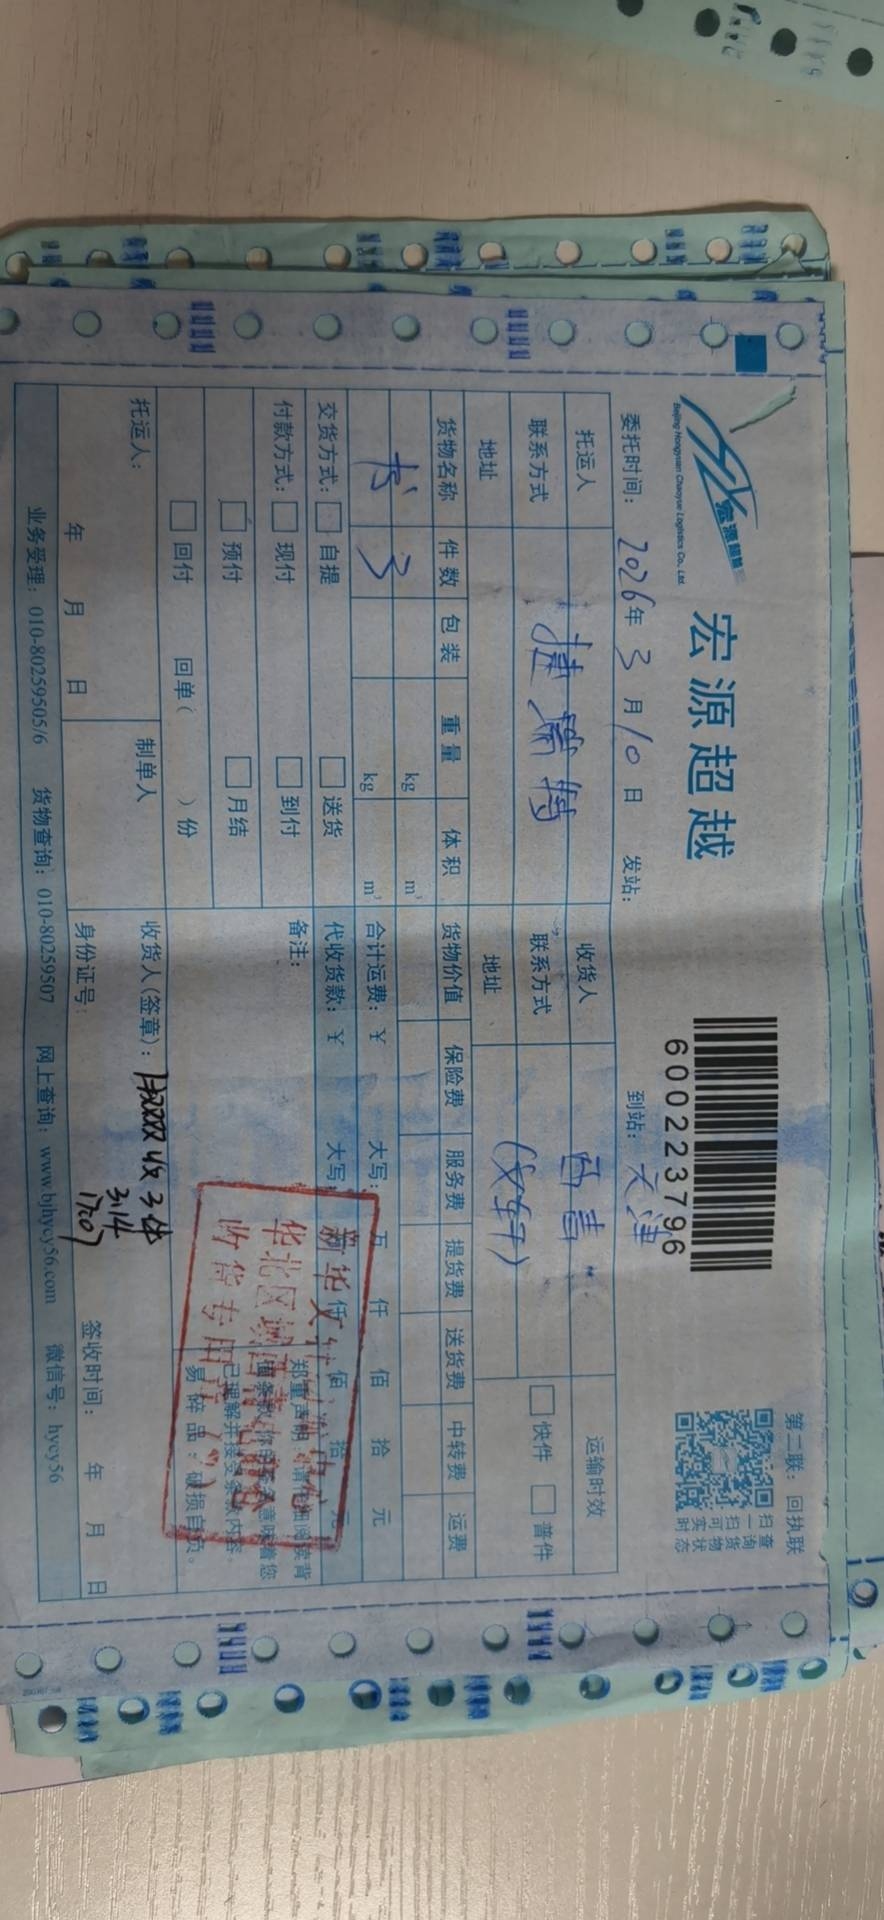 宏源超越
Beijing Hongyuan Chaoyue Logistics Co., Ltd.
宏 源 超 越
600223796
第二联：回执联
扫一扫可实时
查询货物状态
委托时间： 2026 年 3 月 10 日 发站： 到站： 天津
托运人 捷瑞特 收货人 西青 运输时效
联系方式 联系方式 (文轩) 快件 普件
地址 地址
货物名称 件 数 包 装 重 量 体 积 货物价值 保险费 服务费 提货费 送货费 中转费 运费
书 3 kg m³
kg m³ 合计运费：￥ 大写： 万 仟 佰 拾 元
交货方式： 自提 送货 代收货款：￥ 大写： 万 仟 佰 拾 元
付款方式： 现付 到付 备注：
预付 月结
回付 回单( )份
郑重声明：请仔细阅读背
面条款,你的签名意味着您
已理解并接受条款内容。
易 碎 品 ， 破 损 自 负 。
新华文轩
华北区域
收货专用章
托运人： 制单人 收货人(签章)： 收3件
3.14
年 月 日 身份证号： 签收时间： 年 月 日
业务受理：010-80259505/6 货物查询：010-80259507 网上查询：www.bjhycy56.com 微信号：hycy56